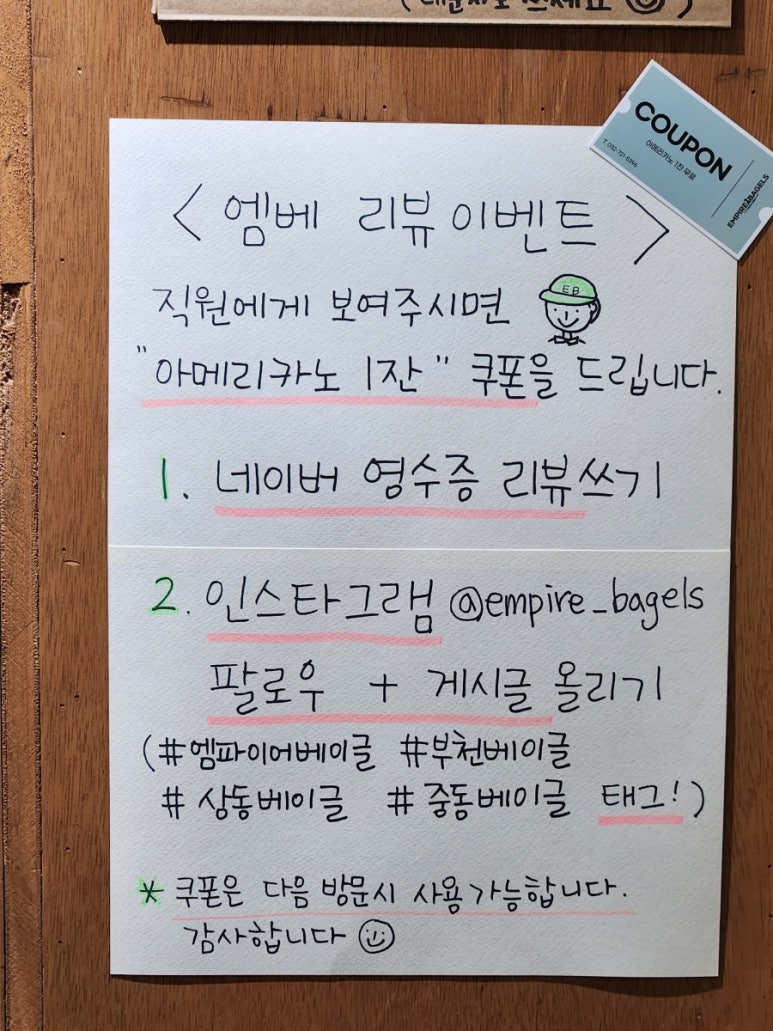 (대문자로 쓰세요 )
COUPON
아메리카노 1잔 무료
T. 032-721-5396
EMPIRE BAGELS
< 엠베 리뷰이벤트 >
직원에게 보여주시면
EB
"아메리카노 1잔" 쿠폰을 드립니다.
1. 네이버 영수증 리뷰쓰기
2. 인스타그램 @empire_bagels
팔로우 + 게시글 올리기
(#엠파이어베이글 #부천베이글
# 상동베이글 # 중동베이글 태그!)
* 쿠폰은 다음 방문시 사용가능합니다.
감사합니다